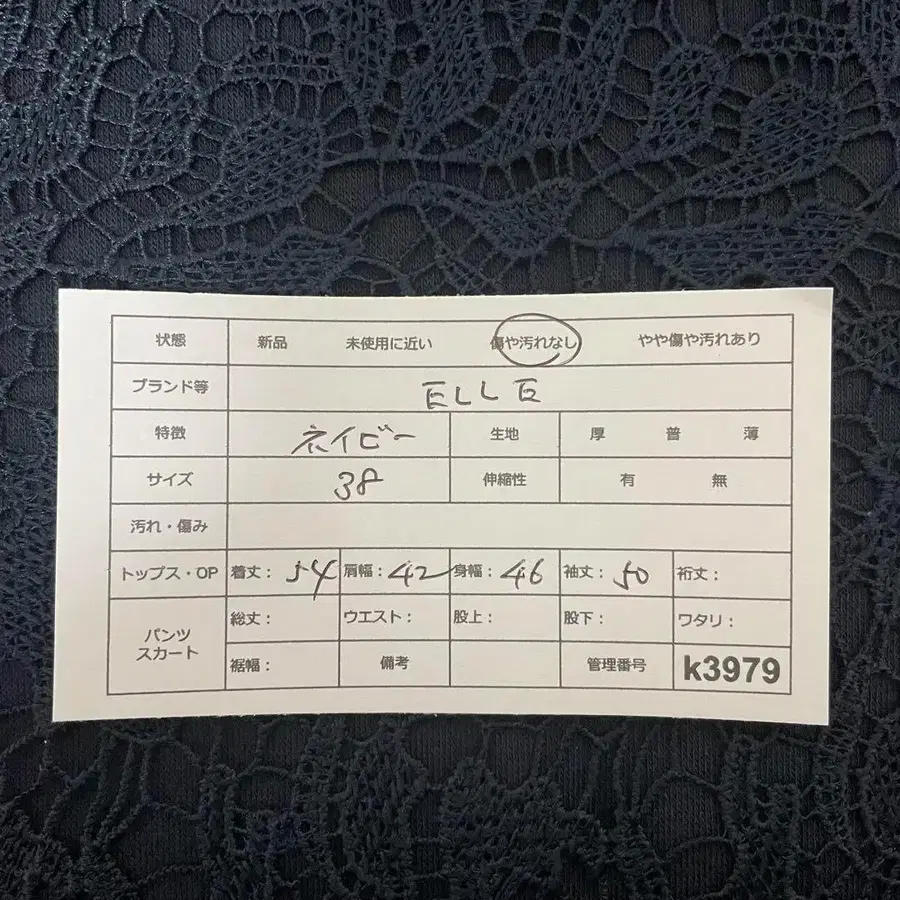 状態 新品 未使用に近い 傷や汚れなし やや傷や汚れあり
ブランド等 ELLE
特徴 ネイビー 生地 厚 普 薄
サイズ 38 伸縮性 有 無
汚れ・傷み
トップス・OP 着丈： 54 肩幅： 42 身幅： 46 袖丈： 50 裄丈：
パンツ スカート 総丈： ウエスト： 股上： 股下： ワタリ：
裾幅： 備考 管理番号 k3979